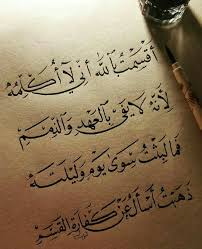 أقسمت بالله أني لا أكلمه
لأنه لا يفي بالعهد والذمم
فما لبثت سوى يوم وليلته
ذهبت أسأل عن كفارة القسم